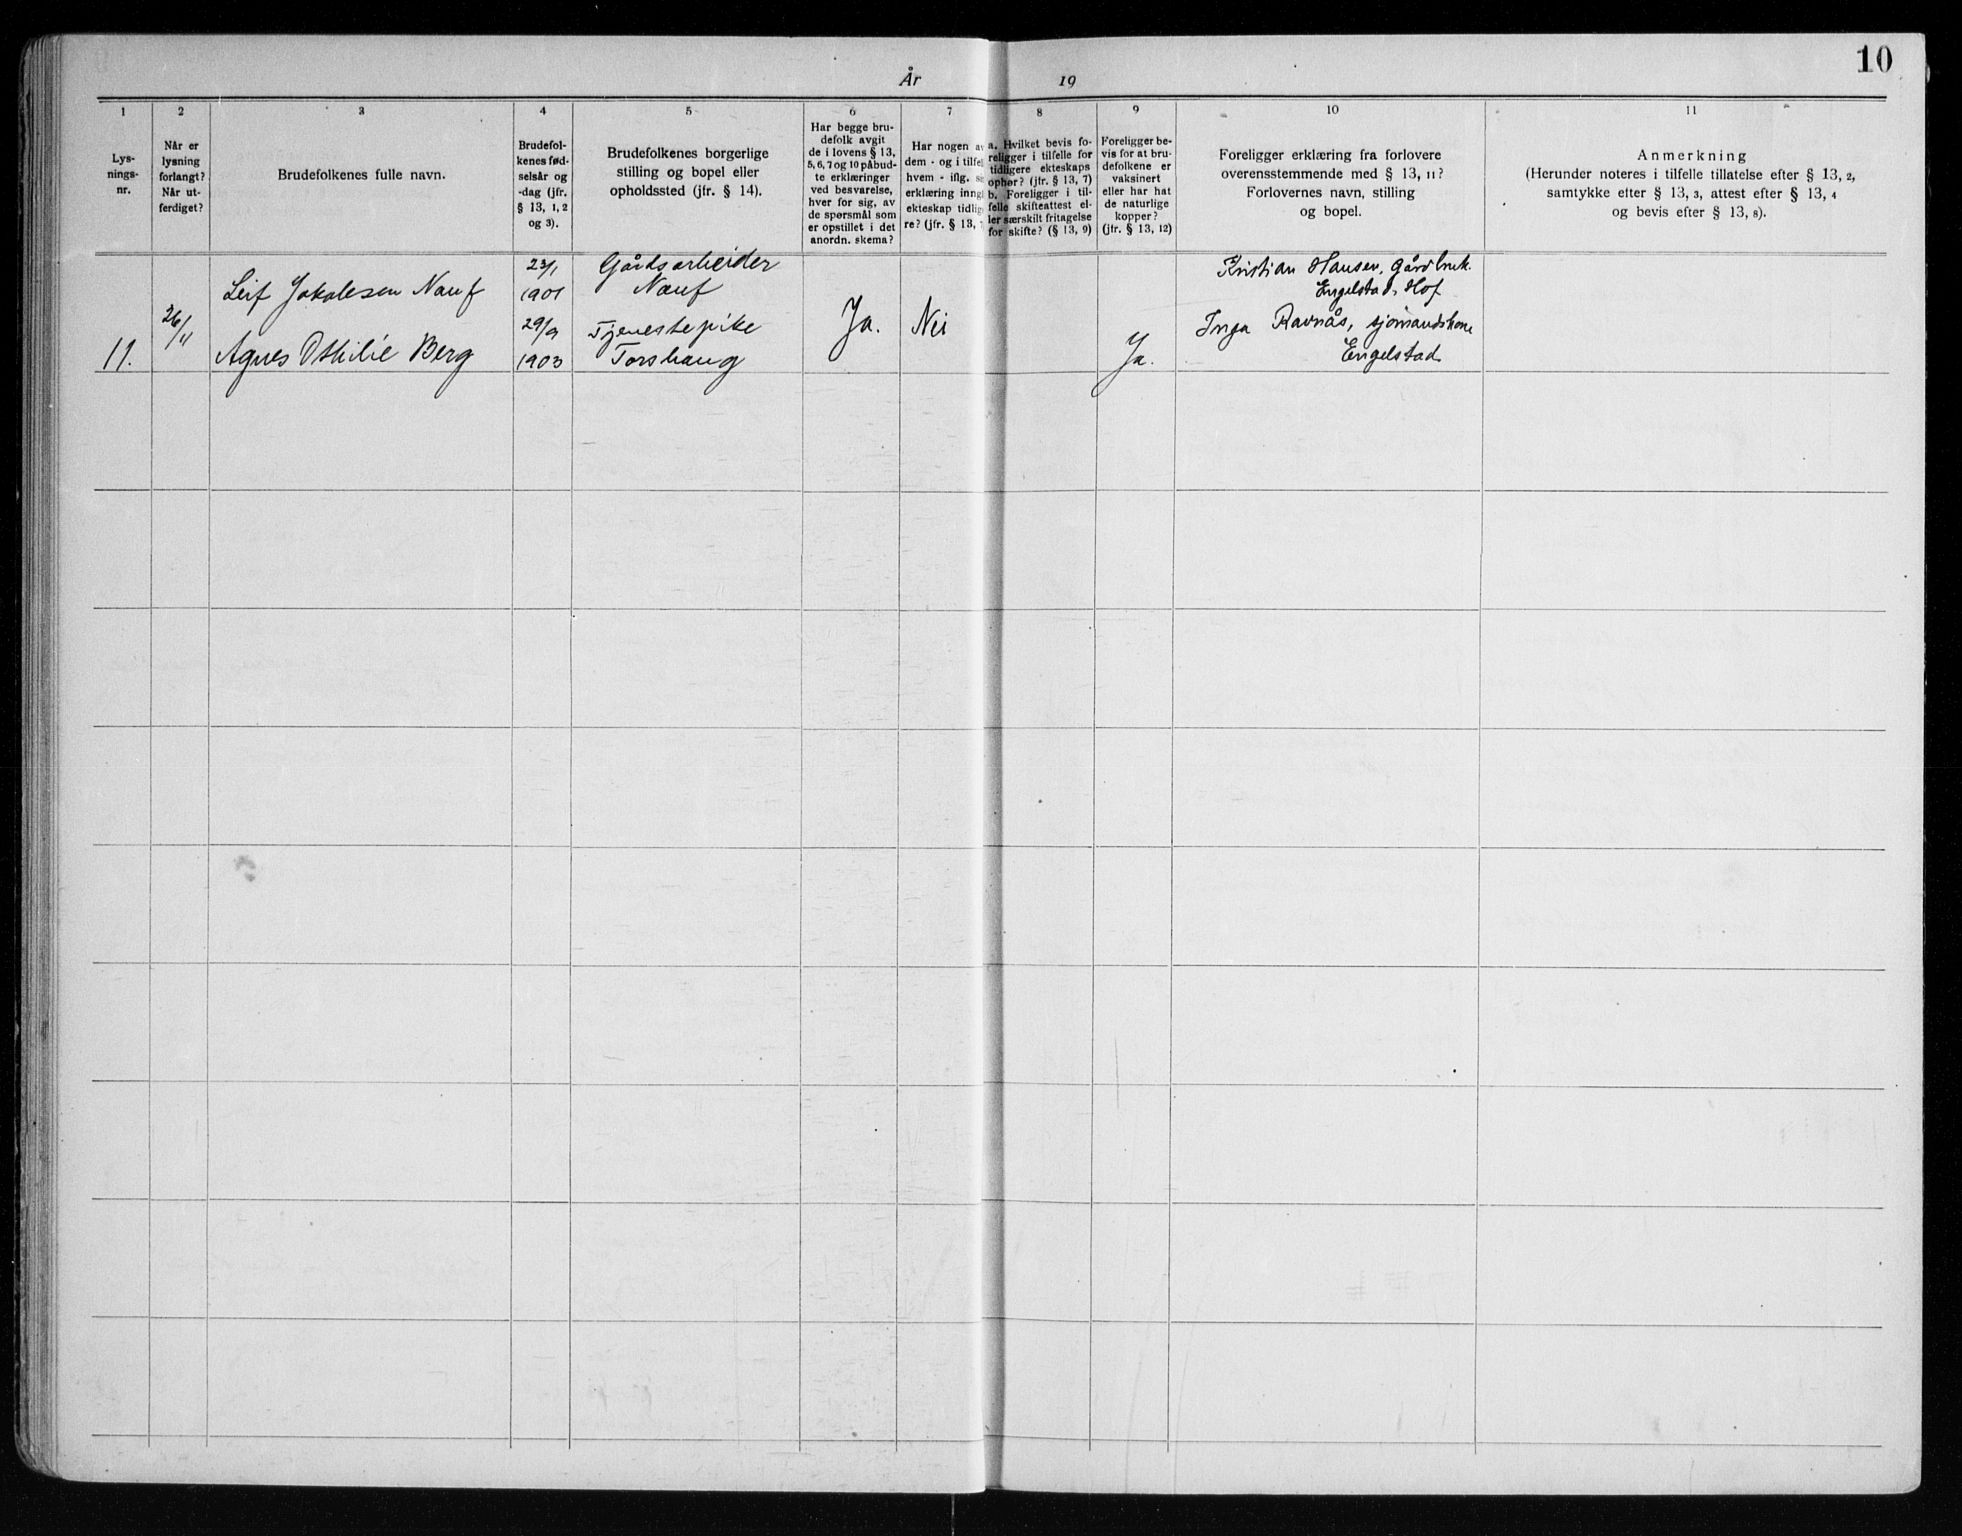 10
År 19
1 2 3 4 5 6 7 8 9 10 11
Lys-
nings-
nr.
Når er
lysning
forlangt?
Når ut-
ferdiget?
Brudefolkenes fulle navn.
Brudefol-
kenes fød-
selsår og
-dag (jfr.
§ 13, 1, 2
og 3).
Brudefolkenes borgerlige
stilling og bopel eller
opholdssted (jfr. § 14).
Har begge bru-
defolk avgit
de i lovens § 13,
5, 6, 7 og 10 påbud-
te erklæringer
ved besvarelse,
hver for sig, av
de spørsmål som
er opstillet i det
anordn. skema?
Har nogen av
dem - og i tilfel
hvem - iflg. s
erklæring inng
ekteskap tidlig
re? (jfr. § 13,
a. Hvilket bevis fo-
religger i tilfelle for
tidligere ekteskaps
ophør? (jfr. § 13, 7)
b. Foreligger i til-
felle skifteattest el-
ler særskilt fritagelse
for skifte? (§ 13, 9)
Foreligger be-
vis for at bru-
defolkene er
vaksinert
eller har hat
de naturlige
kopper?
(jfr. § 13, 12)
Foreligger erklæring fra forlovere
overensstemmende med § 13, 11?
Forlovernes navn, stilling
og bopel.
Anmerkning
(Herunder noteres i tilfelle tillatelse efter § 13, 2,
samtykke efter § 13, 3, attest efter § 13, 4
og bevis efter § 13, 8).
11.
26/11
Leif Jakobsen Nauf
Agnes Othilie Berg
23/1
1901
29/9
1903
Gårdsarbeider
Nauf
Tjenestepike
Torshaug
Ja.
Nei
Ja.
Kristian Hansen, gårdbruk.
Engelstad, Hof
Inga Ravnås, sjømandskone
Engelstad